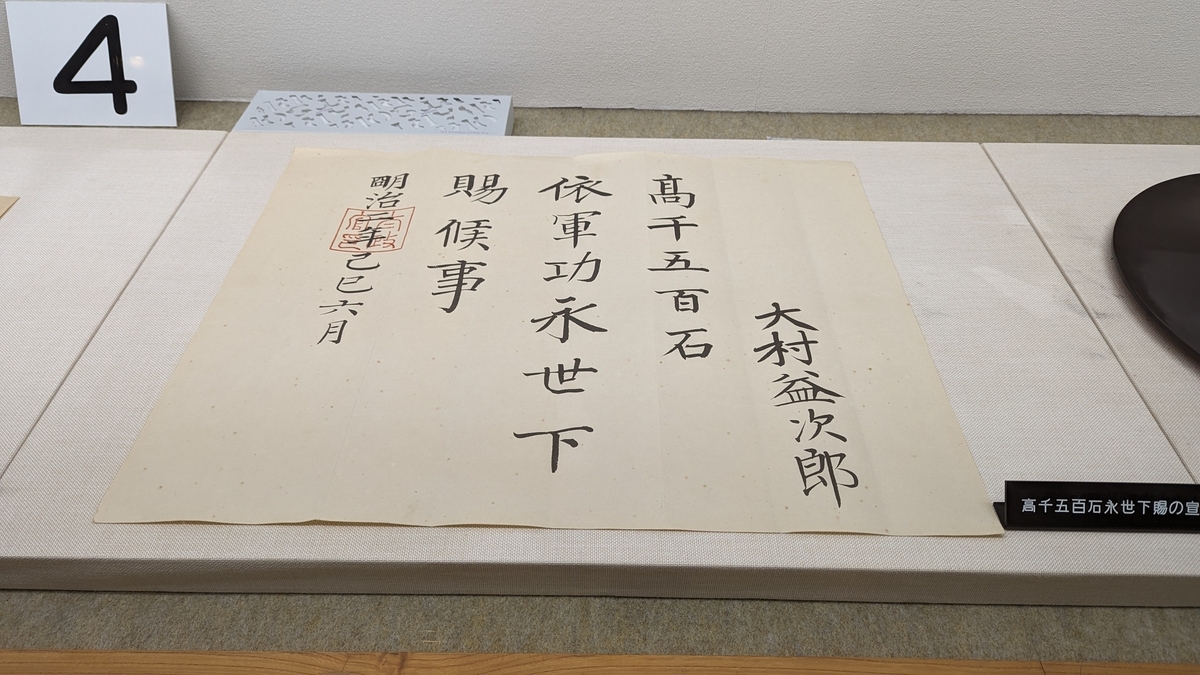 4
大村益次郎
高千五百石
依軍功永世下
賜候事
明治二年己巳六月
高千五百石永世下賜の宣